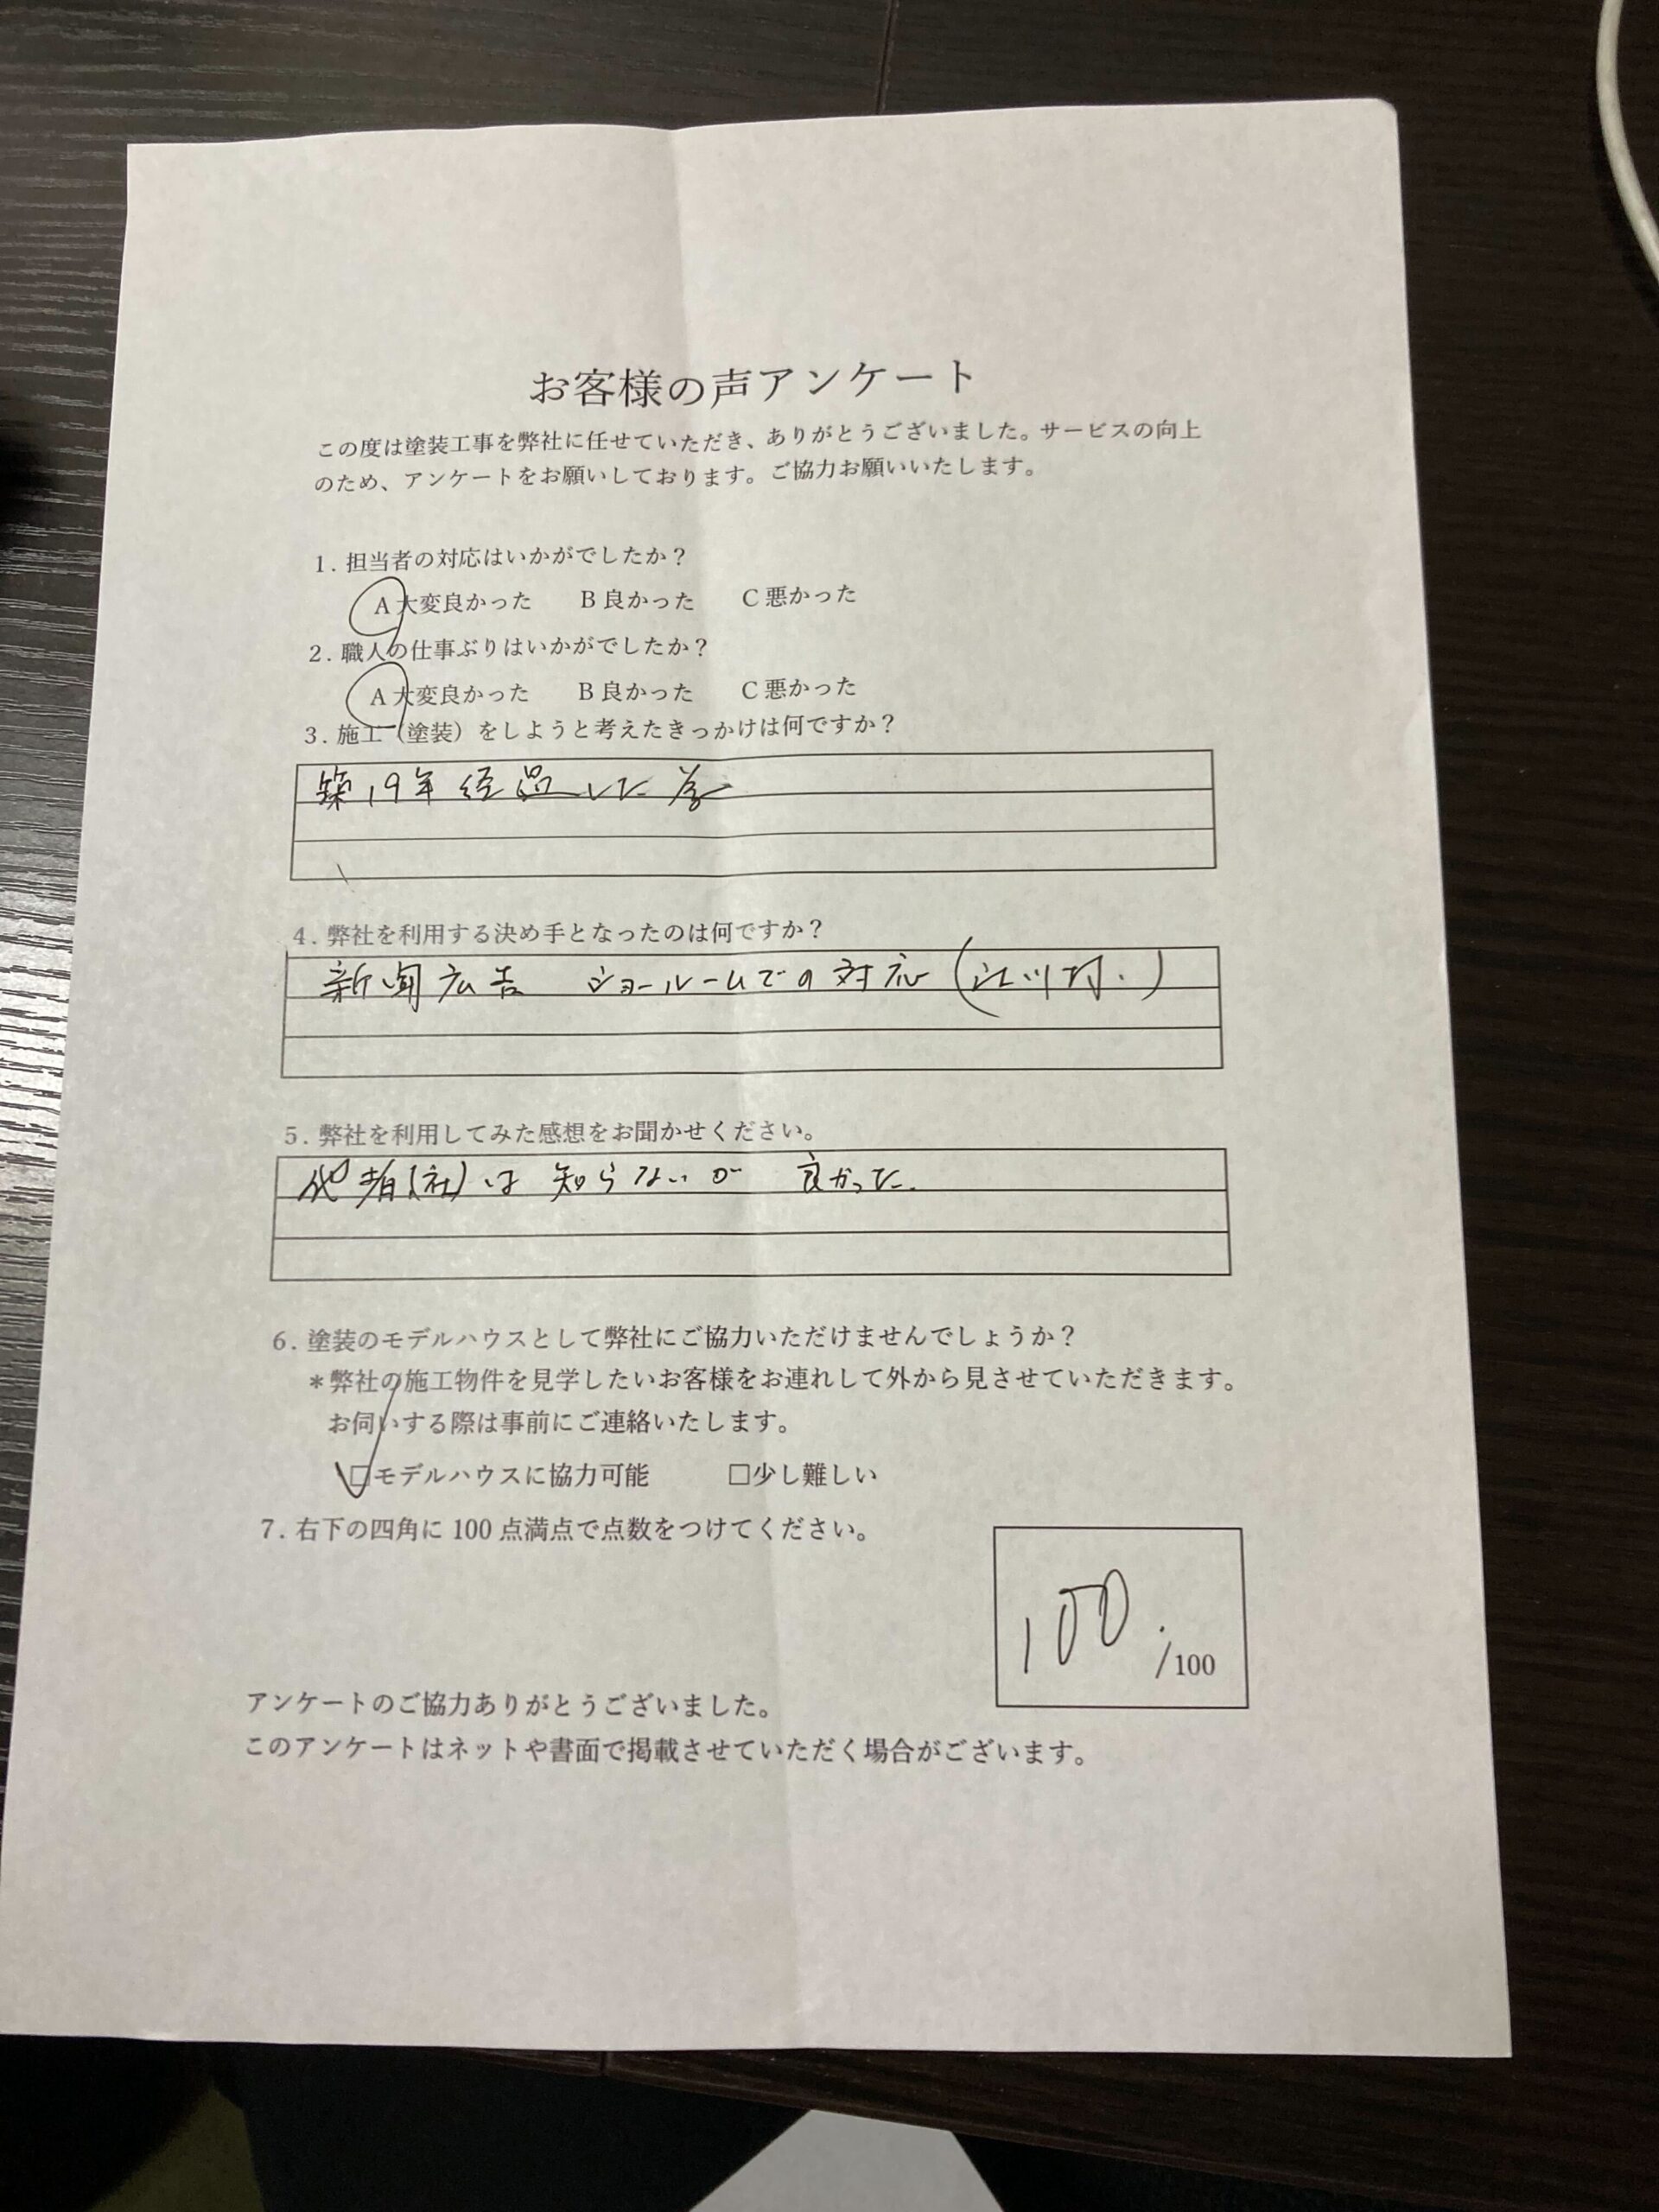 お客様の声アンケート
この度は塗装工事を弊社に任せていただき、ありがとうございました。サービスの向上
のため、アンケートをお願いしております。ご協力お願いいたします。
1. 担当者の対応はいかがでしたか？
A 大変良かった B 良かった C 悪かった
2. 職人の仕事ぶりはいかがでしたか？
A 大変良かった B 良かった C 悪かった
3. 施工（塗装）をしようと考えたきっかけは何ですか？
築19年経過した為
4. 弊社を利用する決め手となったのは何ですか？
新聞広告 ショールームでの対応
5. 弊社を利用してみた感想をお聞かせください。
他者(社)は知らないが 良かった.
6. 塗装のモデルハウスとして弊社にご協力いただけませんでしょうか？
＊弊社の施工物件を見学したいお客様をお連れして外から見させていただきます。
お伺いする際は事前にご連絡いたします。
□モデルハウスに協力可能 □少し難しい
7. 右下の四角に 100 点満点で点数をつけてください。
100. /100
アンケートのご協力ありがとうございました。
このアンケートはネットや書面で掲載させていただく場合がございます。